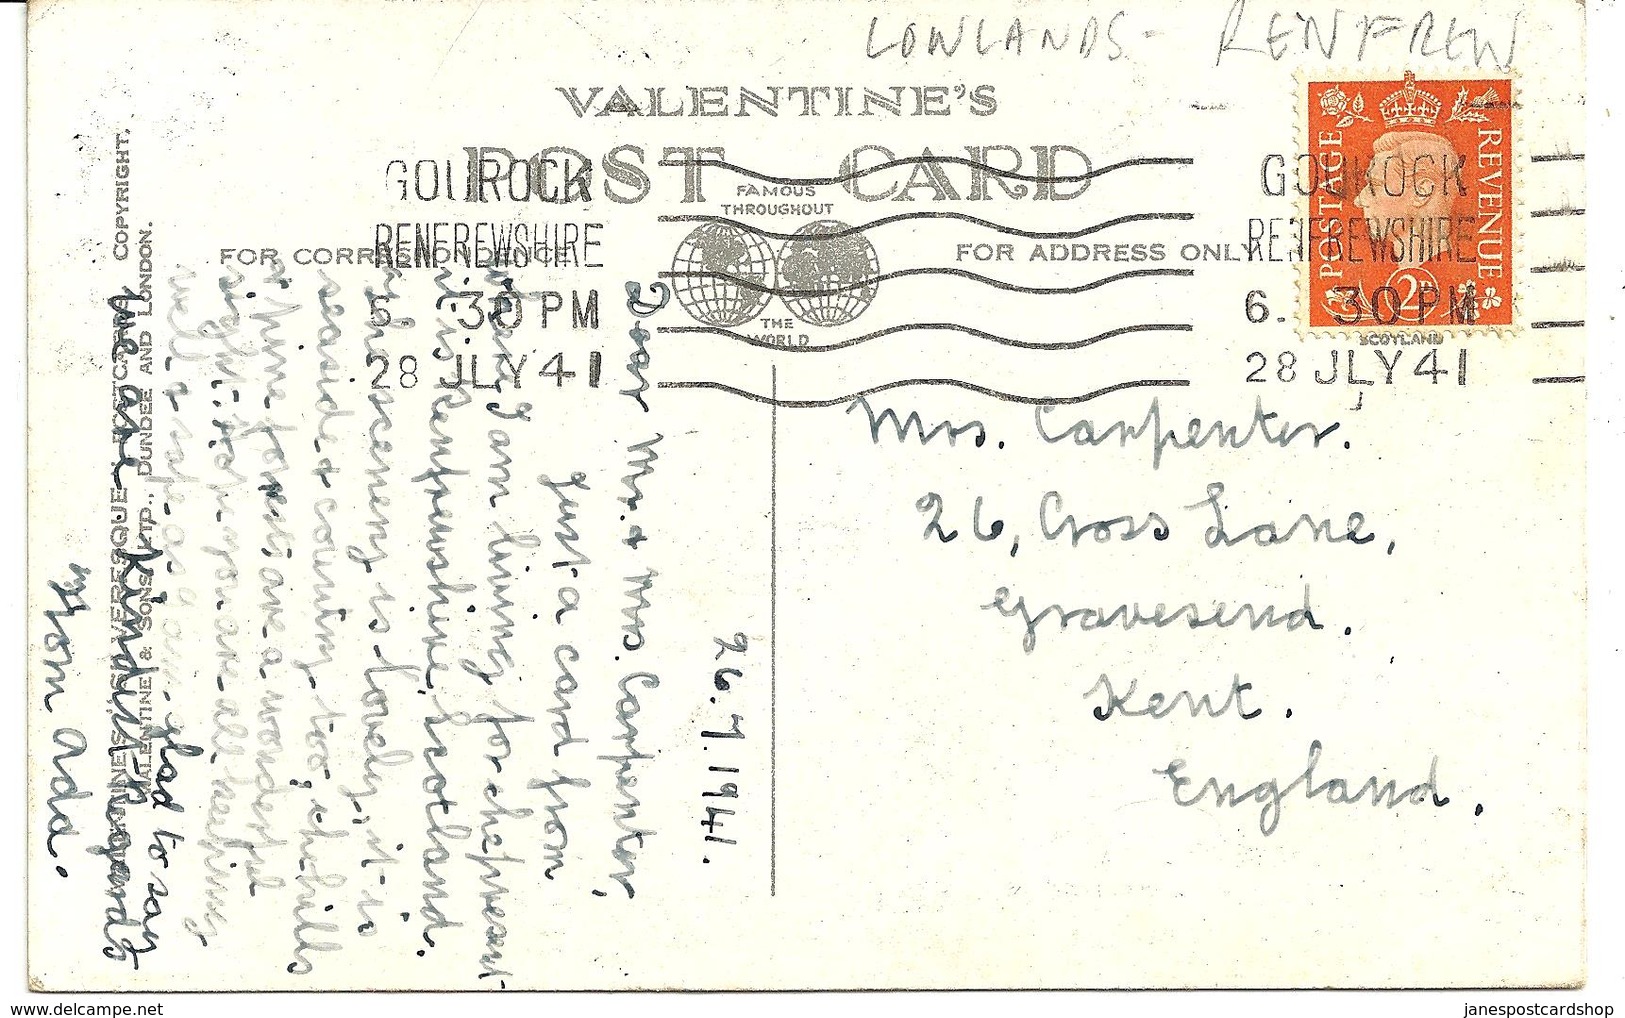 LOWLANDS - RENFREW
VALENTINE'S
POST CARD
FAMOUS
THROUGHOUT
THE
WORLD
FOR CORRESPONDENCE
FOR ADDRESS ONLY
GOUROCK
RENFREWSHIRE
6. 30 PM
28 JLY 41
GOUROCK
RENFREWSHIRE
6. 30 PM
28 JLY 41
POSTAGE
REVENUE
2D
Mrs. Carpenter.
26, Cross Lane,
Gravesend.
Kent.
England.
26.7.1941.
Dear Mr. & Mrs. Carpenter,
Just a card from
where I am living for the present
it is Renfrewshire, Scotland.
The scenery is lovely, it is
seaside & country too, the hills
& pine forests are a wonderful
sight. Hope you are all keeping
well & safe as I am glad to say
we are Kindest Regards
from Ada.
COPYRIGHT.
VALENTINE & SONS, LTD., DUNDEE AND LONDON.
delcampe.net
janespostcardshop